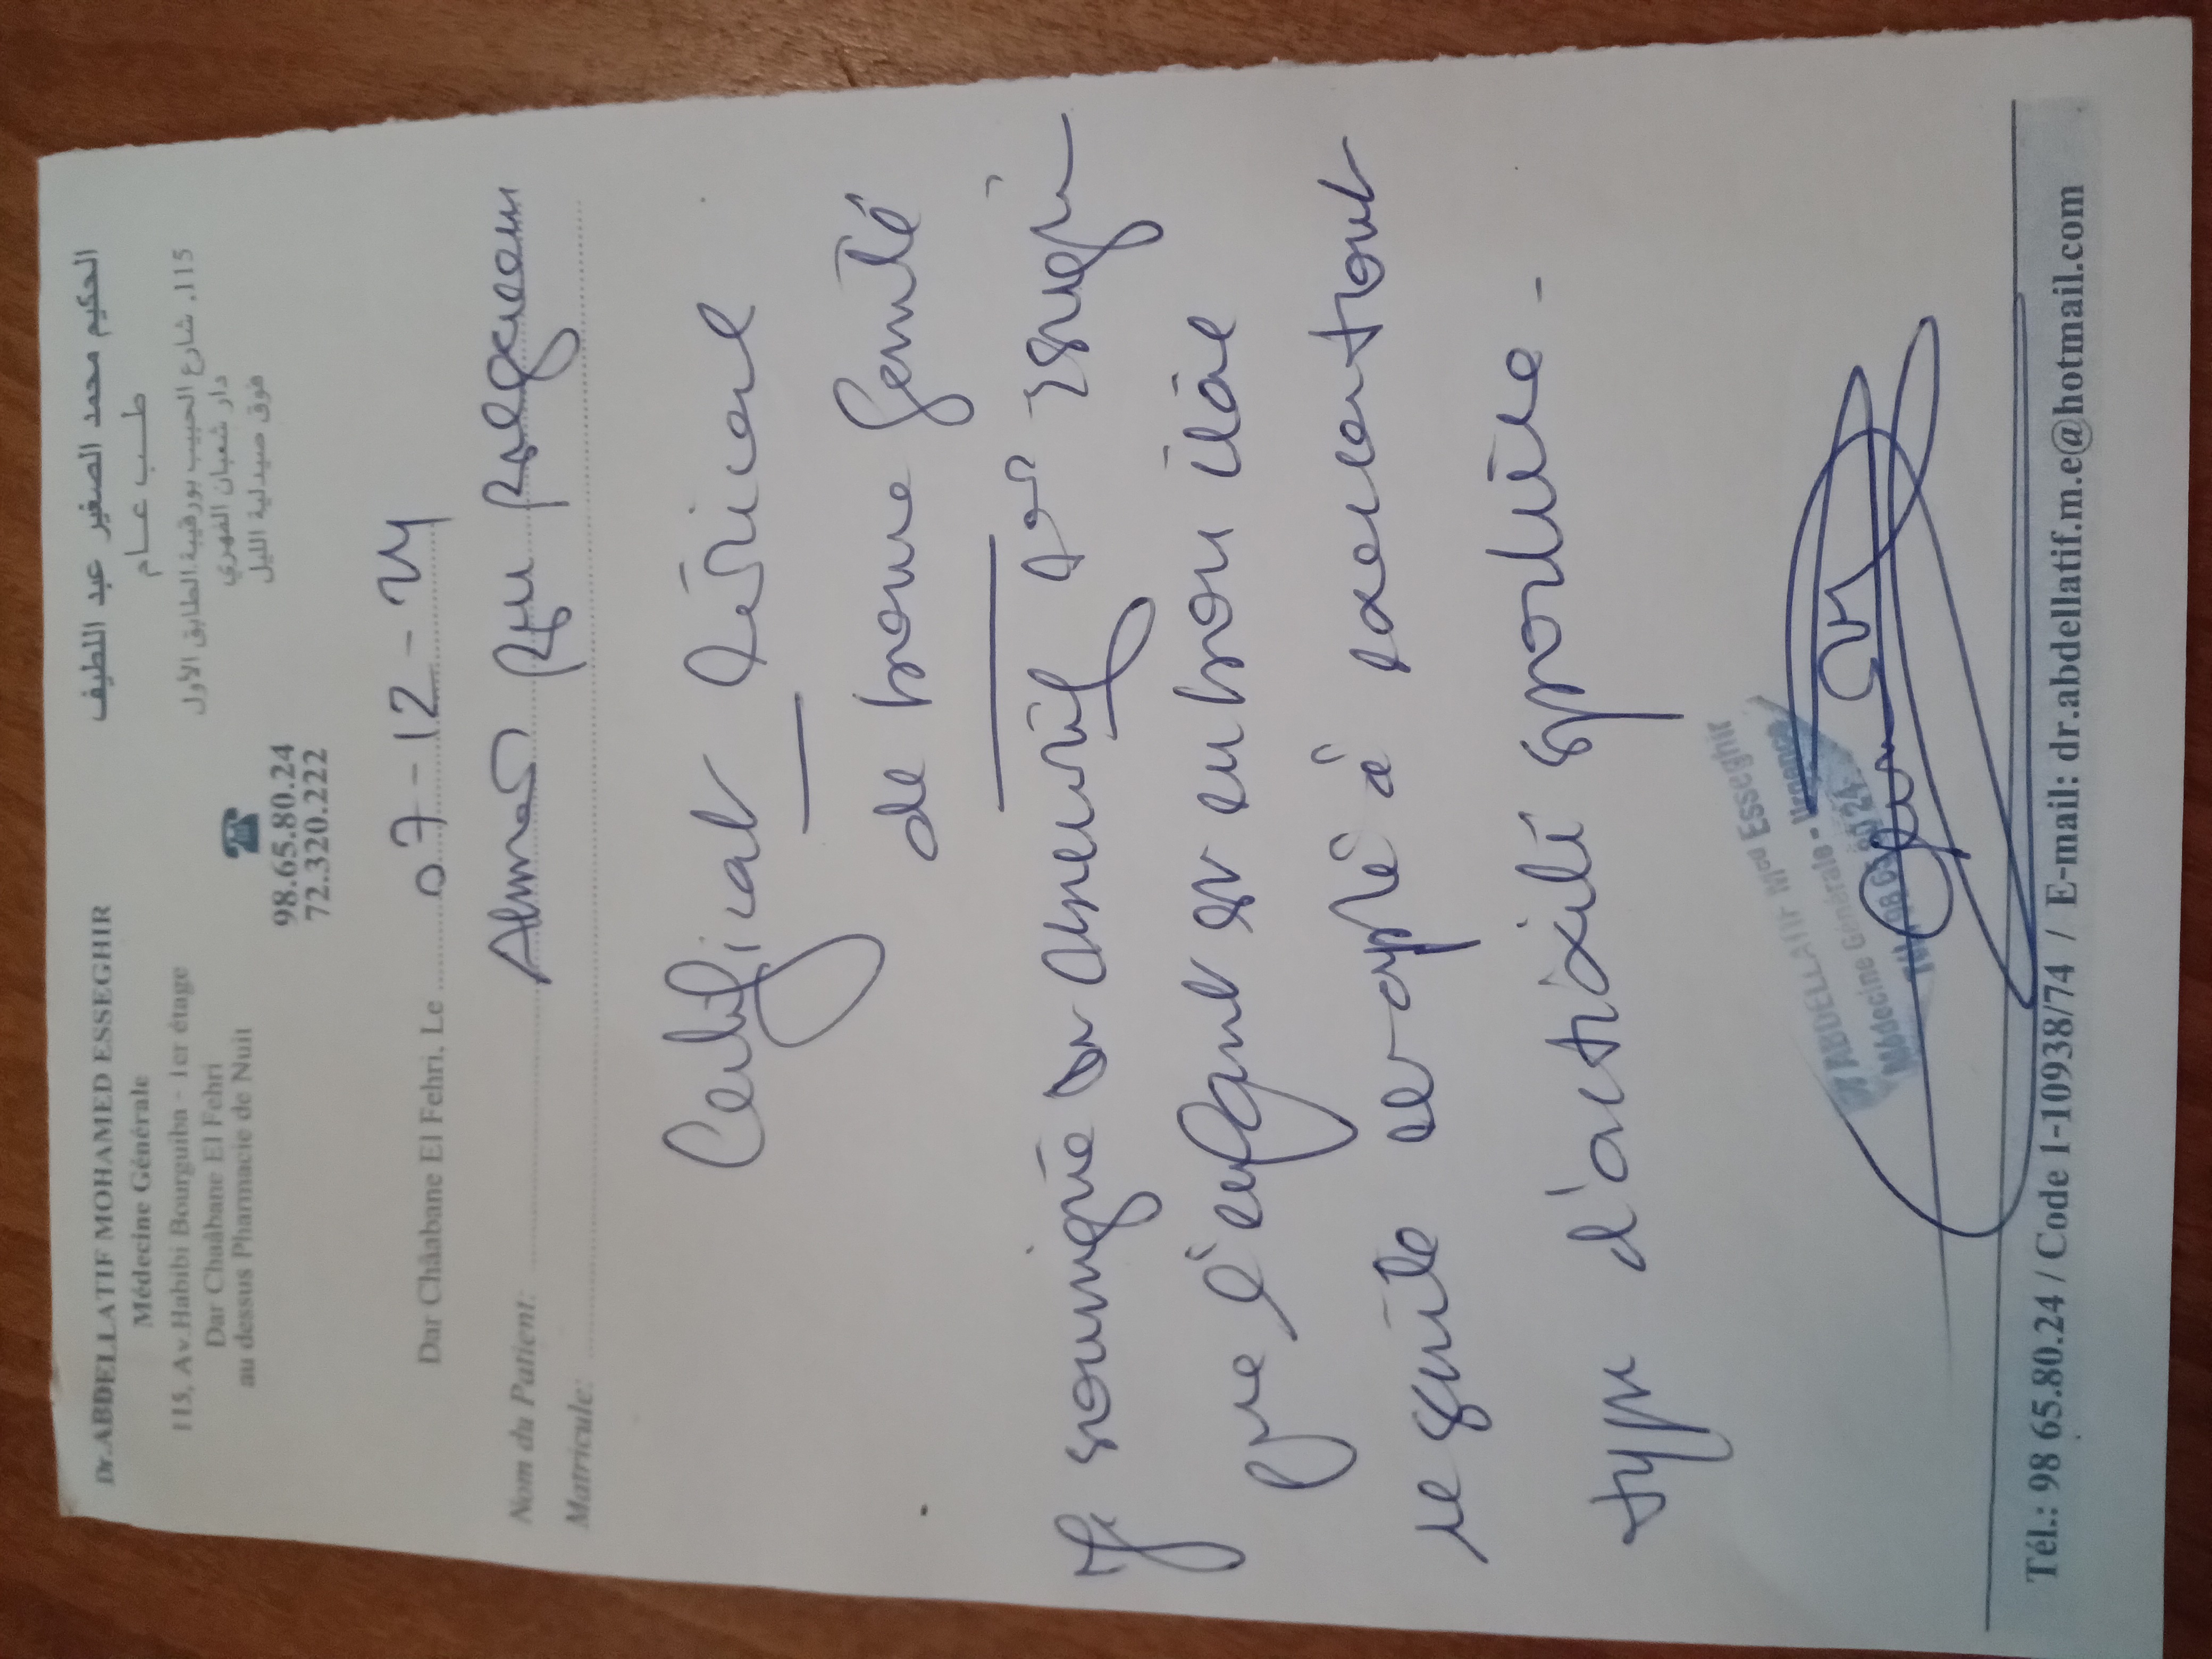 Dr.ABDELLATIF MOHAMED ESSEGHIR
Médecine Générale
115, Av.Habibi Bourguiba - 1er étage
Dar Chaâbane El Fehri
au dessus Pharmacie de Nuit
☎
98.65.80.24
72.320.222
الحكيم محمد الصغير عبد اللطيف
طب عام
115، شارع الحبيب بورقيبة الطابق الأول
دار شعبان الفهري
فوق صيدلية الليل
Dar Châabane El Fehri, Le 07-12-24
Nom du Patient: Ahmed
Matricule:
Certificat Médical
de bonne Santé
Je soussigné Dr Abdellatif
que l'enfant est en bon état
de santé est apte à
type d'activité sportive -
Dr ABDELLATIF Med Esseghir
Médecine Générale - Urgence
Tél: 98 65 80 24
Tél.: 98 65.80.24 / Code 1-10938/74 / E-mail: dr.abdellatif.m.e@hotmail.com